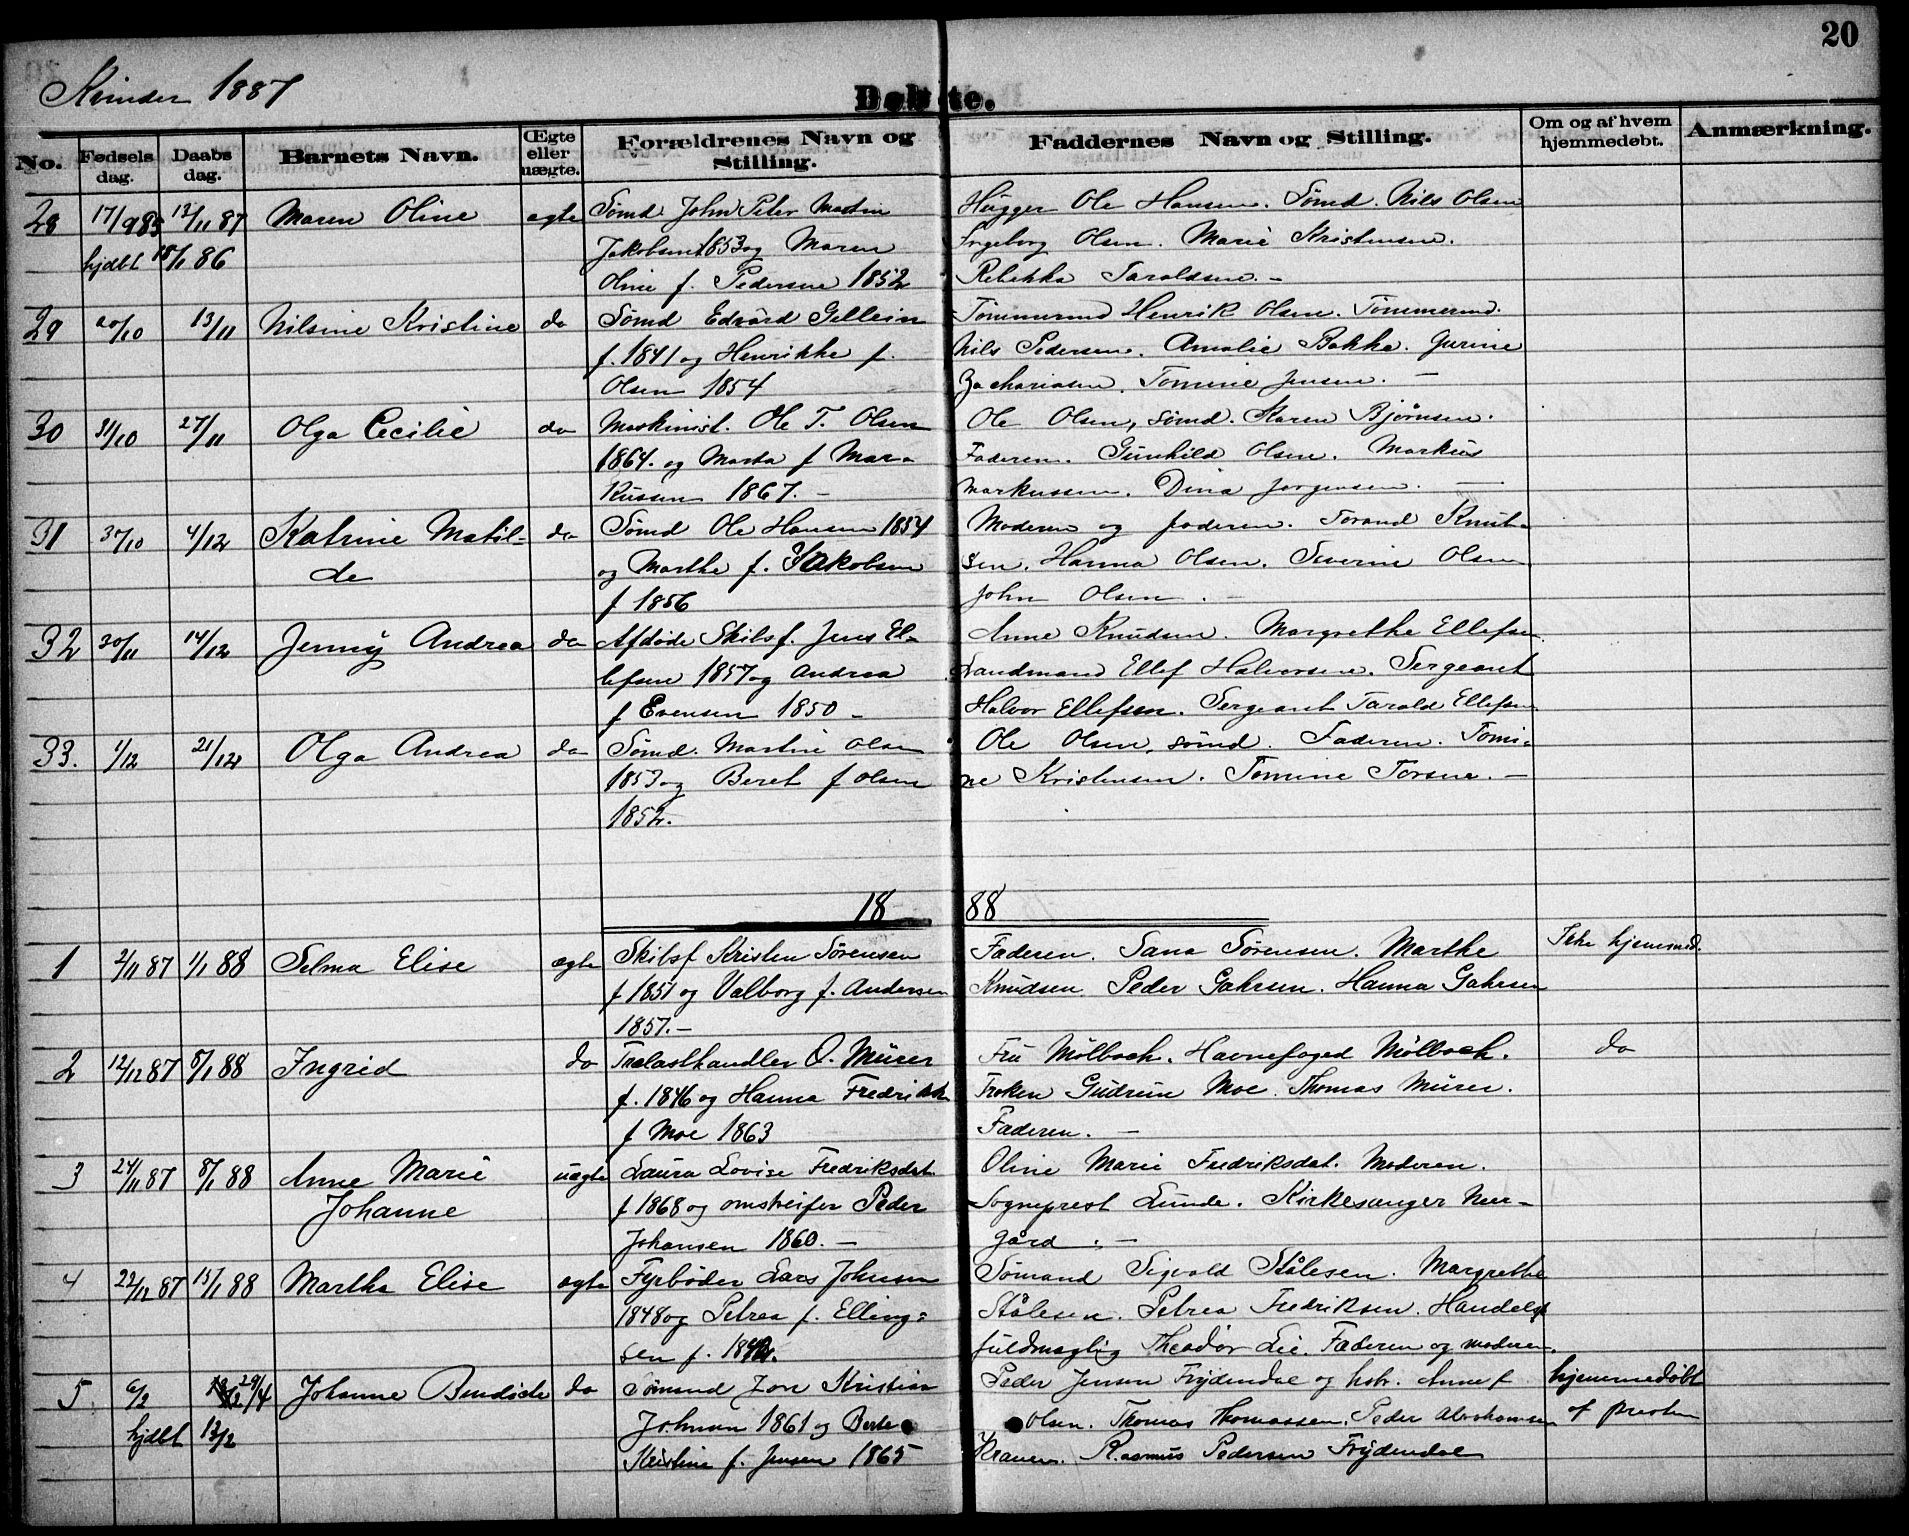 20
Kvinder 1887
Døbte.
No. Fødsels dag. Daabs dag. Barnets Navn. Ægte eller uægte. Forældrenes Navn og Stilling. Faddernes Navn og Stilling. Om og af hvem hjemmedøbt. Anmærkning.
28 17/9 85 12/11 87 Maren Oline ægte Sømd John Peter Martin Hugger Ole Hansen. Sømd. Nils Olsen
hjdbt 18/1 86 Jakobsen 1853 og Maren Ingeborg Olsen. Marie Kristensen.
Oline f. Pedersen 1852 Rebekka Taraldsen. -
29 20/10 13/11 Nilsine Kristine do Sømd Edvard Gellein Tømmermd Henrik Olsen. Tømmermd.
f. 1841 og Henrikke f. Nils Pedersen. Amalie Bakke. Gurine
Olsen 1854 Zachariasen. Tomine Jensen. -
30 31/10 27/11 Olga Cecilie do Maskinist. Ole T. Olsen Ole Olsen, sømd. Karen Bjørnsen.
1864. og Marta f Mar- Faderen. Gunhild Olsen. Markus
kussen 1867. - Markussen. Dina Jørgensen. -
31 30/10 4/12 Katrine Matil- do Sømd Ole Hansen 1854 Moderen og faderen. Torand Knut-
de og Marthe f. Jakobsen sen. Hanna Olsen. Severin Olsen
f 1856 John Olsen. -
32 30/11 14/12 Jenny Andrea do Afdøde Skibsf. Jens El- Anne Knudsen. Margrethe Ellefsen.
lefsen 1857 og Andrea Landmand Ellef Halvorsen. Sergeant
f Evensen 1850 - Halvor Ellefsen. Sergeant Tarald Ellefsen
33. 1/12 21/12 Olga Andrea do Sømd. Martin Olsen Ole Olsen, sømd. Faderen. Tomi-
1853 og Beret f Olsen ne Kristensen. Tomine Torsen. -
1852.
1888
1 2/11 87 1/1 88 Selma Elise ægte Skibsf Kristen Sørensen Faderen. Sana Sørensen. Marthe Ikke hjemmed.
f 1851 og Valborg f. Andersen Knudsen. Peder Gahrsen. Hanna Gahrsen
1857. -
2 12/12 87 8/1 88 Ingrid do Trælasthandler O. Mürer Fru Mølbach. Havnefoged Mølbach. do
f. 1846 og Hanna Fredrikke Frøken Gudrun Moe. Thomas Mürer.
f Moe 1863 Faderen. -
3 24/11 87 8/1 88 Anne Marie uægte Laura Lovise Fredriksdat. Oline Marie Fredriksdat. Moderen.
Johanne f 1868 og omstreifer Peder Sogneprest Lunde. Kirkesanger Neer-
Johansen 1860. - gård. -
4 22/12 87 15/1 88 Martha Elise ægte Fyrbøder Lars Johnsen Sømand Sigvald Stålesen. Margrethe
1848 og Petrea f. Elling- Stålesen. Petrea Fredriksen. Handels
sen f. fuldmægtig Theodor Lie. Faderen og moderen.
5 6/2 29/4 Johanne Bendicte do Sømand Kristian Peder Jensen Frydendal og hstr. Anne f hjemmedøbt
hjdbt 13/2 Johnsen 1861 og Berte Olsen. Thomas Thomassen. Peder Abrahamsen af presten
Kristine f. Jensen 1865 Rasmus Pedersen Frydendal